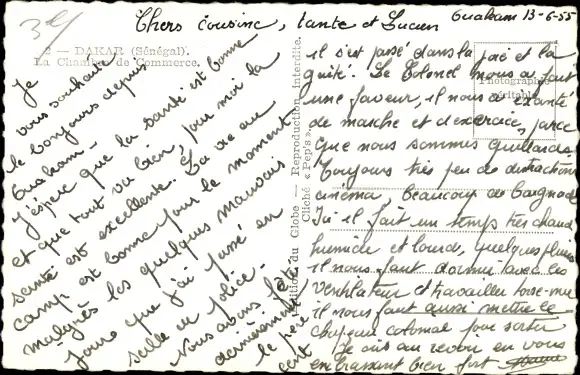 Chers cousine, tante et Lucien
Ouakam 13-6-55
2 — DAKAR (Sénégal).
La Chambre de Commerce.
Je
vous souhaite
le bonjour depuis
Ouakam -
J'espère que la santé est bonne
et que tout va bien, pour moi la
santé est excellente. La vie au
camp est bonne pour le moment
malgrès les quelques mauvais
jours que j'ai passé en
salle de police.
Nous avons fêté
dernièrement
le père
cent
Édition du Globe — Reproduction Interdite.
Cliché « Pep's ».
Photographie
véritable
il s'est passé dans la joie et la
gaité. Le Colonel nous a fait
une faveur, il nous a exempté
de marche et d'exercice, parce
que nous sommes gaillards.
Toujours très peu de distraction
cinéma, beaucoup de baignade
Ici il fait un temps très chaud
humide et lourd, quelques pluies
il nous faut dormir avec les
ventilateur et travailler torse-nu
il nous faut aussi mettre le
chapeau colonial pour sortir
Je dis au revoir en vous
embrassant bien fort